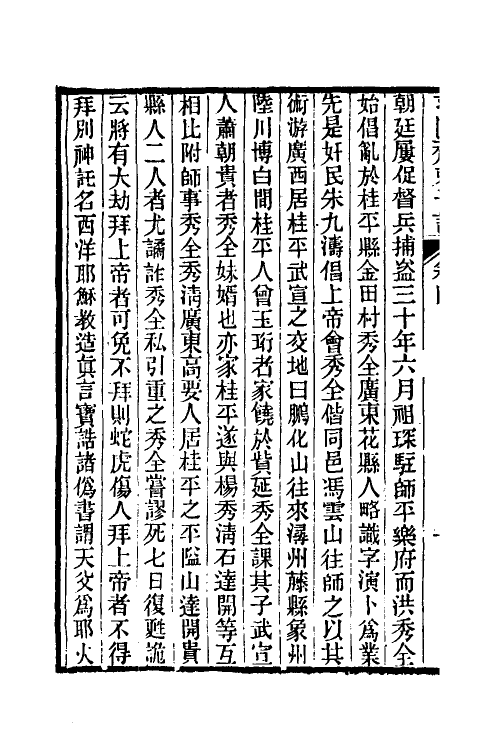 朝廷屢促督兵捕盜三十年六月祖琛駐師平樂府而洪秀全
始倡亂於桂平縣金田村秀全廣東花縣人略識字演卜爲業
先是奸民朱九濤倡上帝會秀全偕同邑馮雲山往師之以其
術游廣西居桂平武宣之交地曰鵬化山往來潯州藤縣象州
陸川博白間桂平人曾玉珩者家饒於貲延秀全課其子武宣
人蕭朝貴者秀全妹婿也亦家桂平遂與楊秀淸石達開等互
相比附師事秀全秀淸廣東高要人居桂平之平隘山達開貴
縣人二人者尤譎詐秀全私引重之秀全嘗謬死七日復甦詭
云將有大劫拜上帝者可免不拜則蛇虎傷人拜上帝者不得
拜別神託名西洋耶穌教造眞言寶誥諸僞書謂天父爲耶火